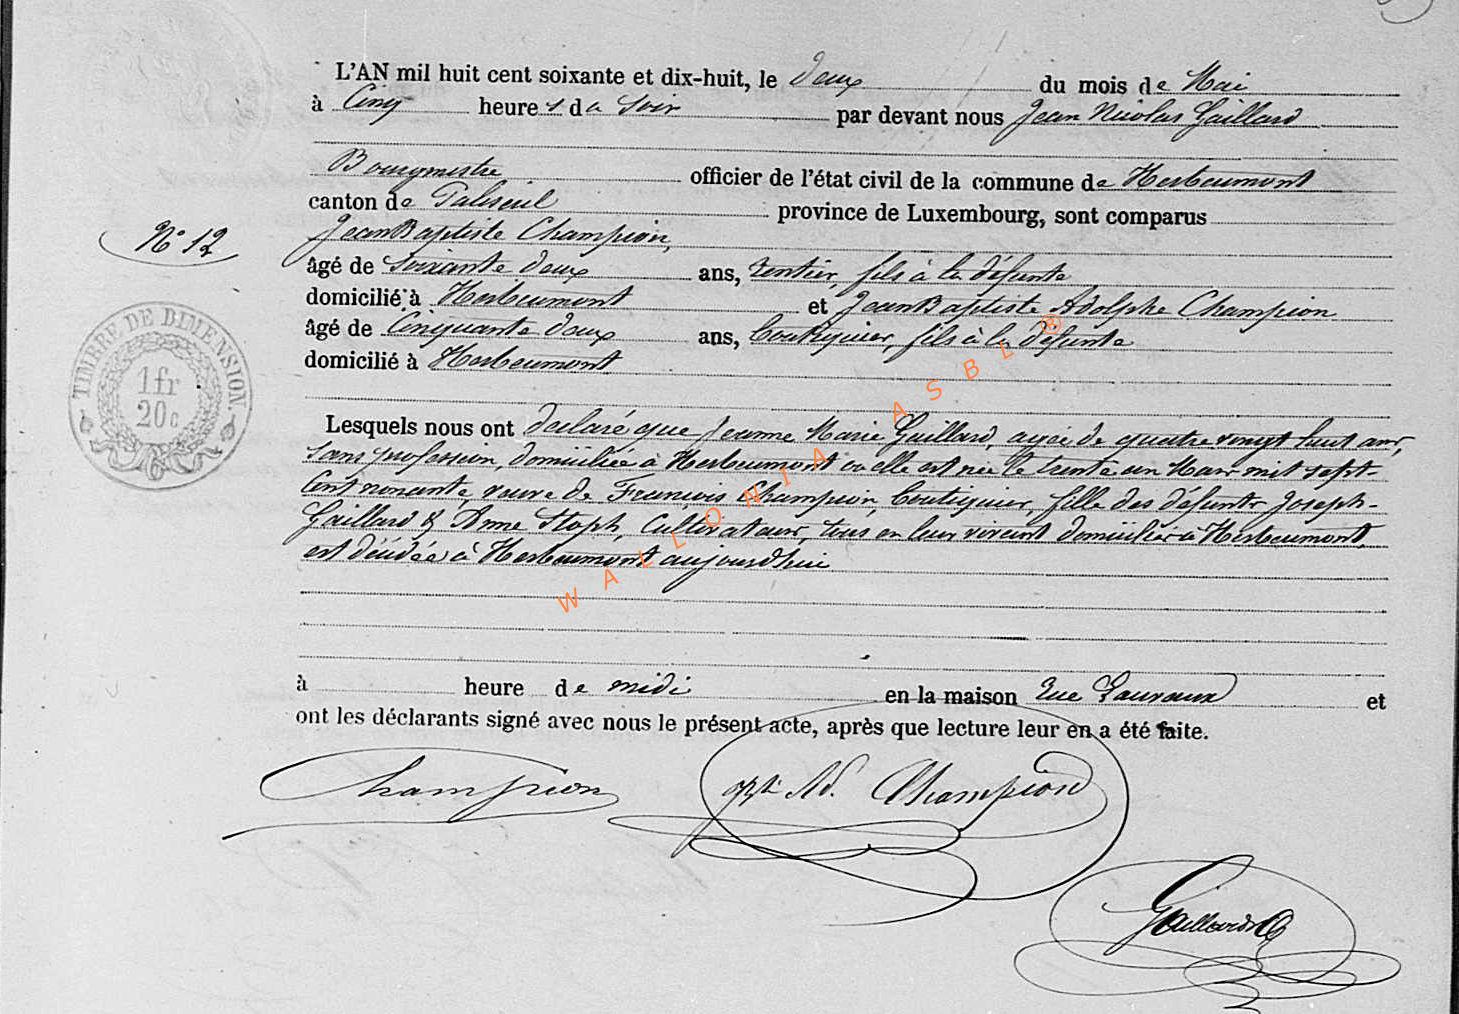 L'AN mil huit cent soixante et dix-huit, le deux du mois de Mai
à Cinq heures du Soir par devant nous Jean Nicolas Gaillard
Bourgmestre officier de l'état civil de la commune de Herbeumont
canton de Paliseul province de Luxembourg, sont comparus
N° 12
Jean Baptiste Champion,
âgé de Soixante deux ans, rentier, fils à la défunte
domicilié à Herbeumont et Jean Baptiste Adolphe Champion
âgé de Cinquante deux ans, Boutiquier, fils à la défunte
domicilié à Herbeumont
TIMBRE DE DIMENSION.
1fr
20c
Lesquels nous ont déclaré que Jeanne Marie Gaillard, agée de quatre vingt huit ans,
sans profession, domiciliée à Herbeumont où elle est née le trente un Mars mil sept-
cent nonante, veuve de François Champion, boutiquier, fille des défunts Joseph-
Gaillard & Anne Stoph, Cultivateurs, tous en leur vivant domiciliés à Herbeumont,
est décédée à Herbeumont aujourd'hui
WALLONIA ASBL ®
à heure de midi en la maison rue Lauvaux et
ont les déclarants signé avec nous le présent acte, après que lecture leur en a été faite.
Champion
Ad. Champion
Gaillard